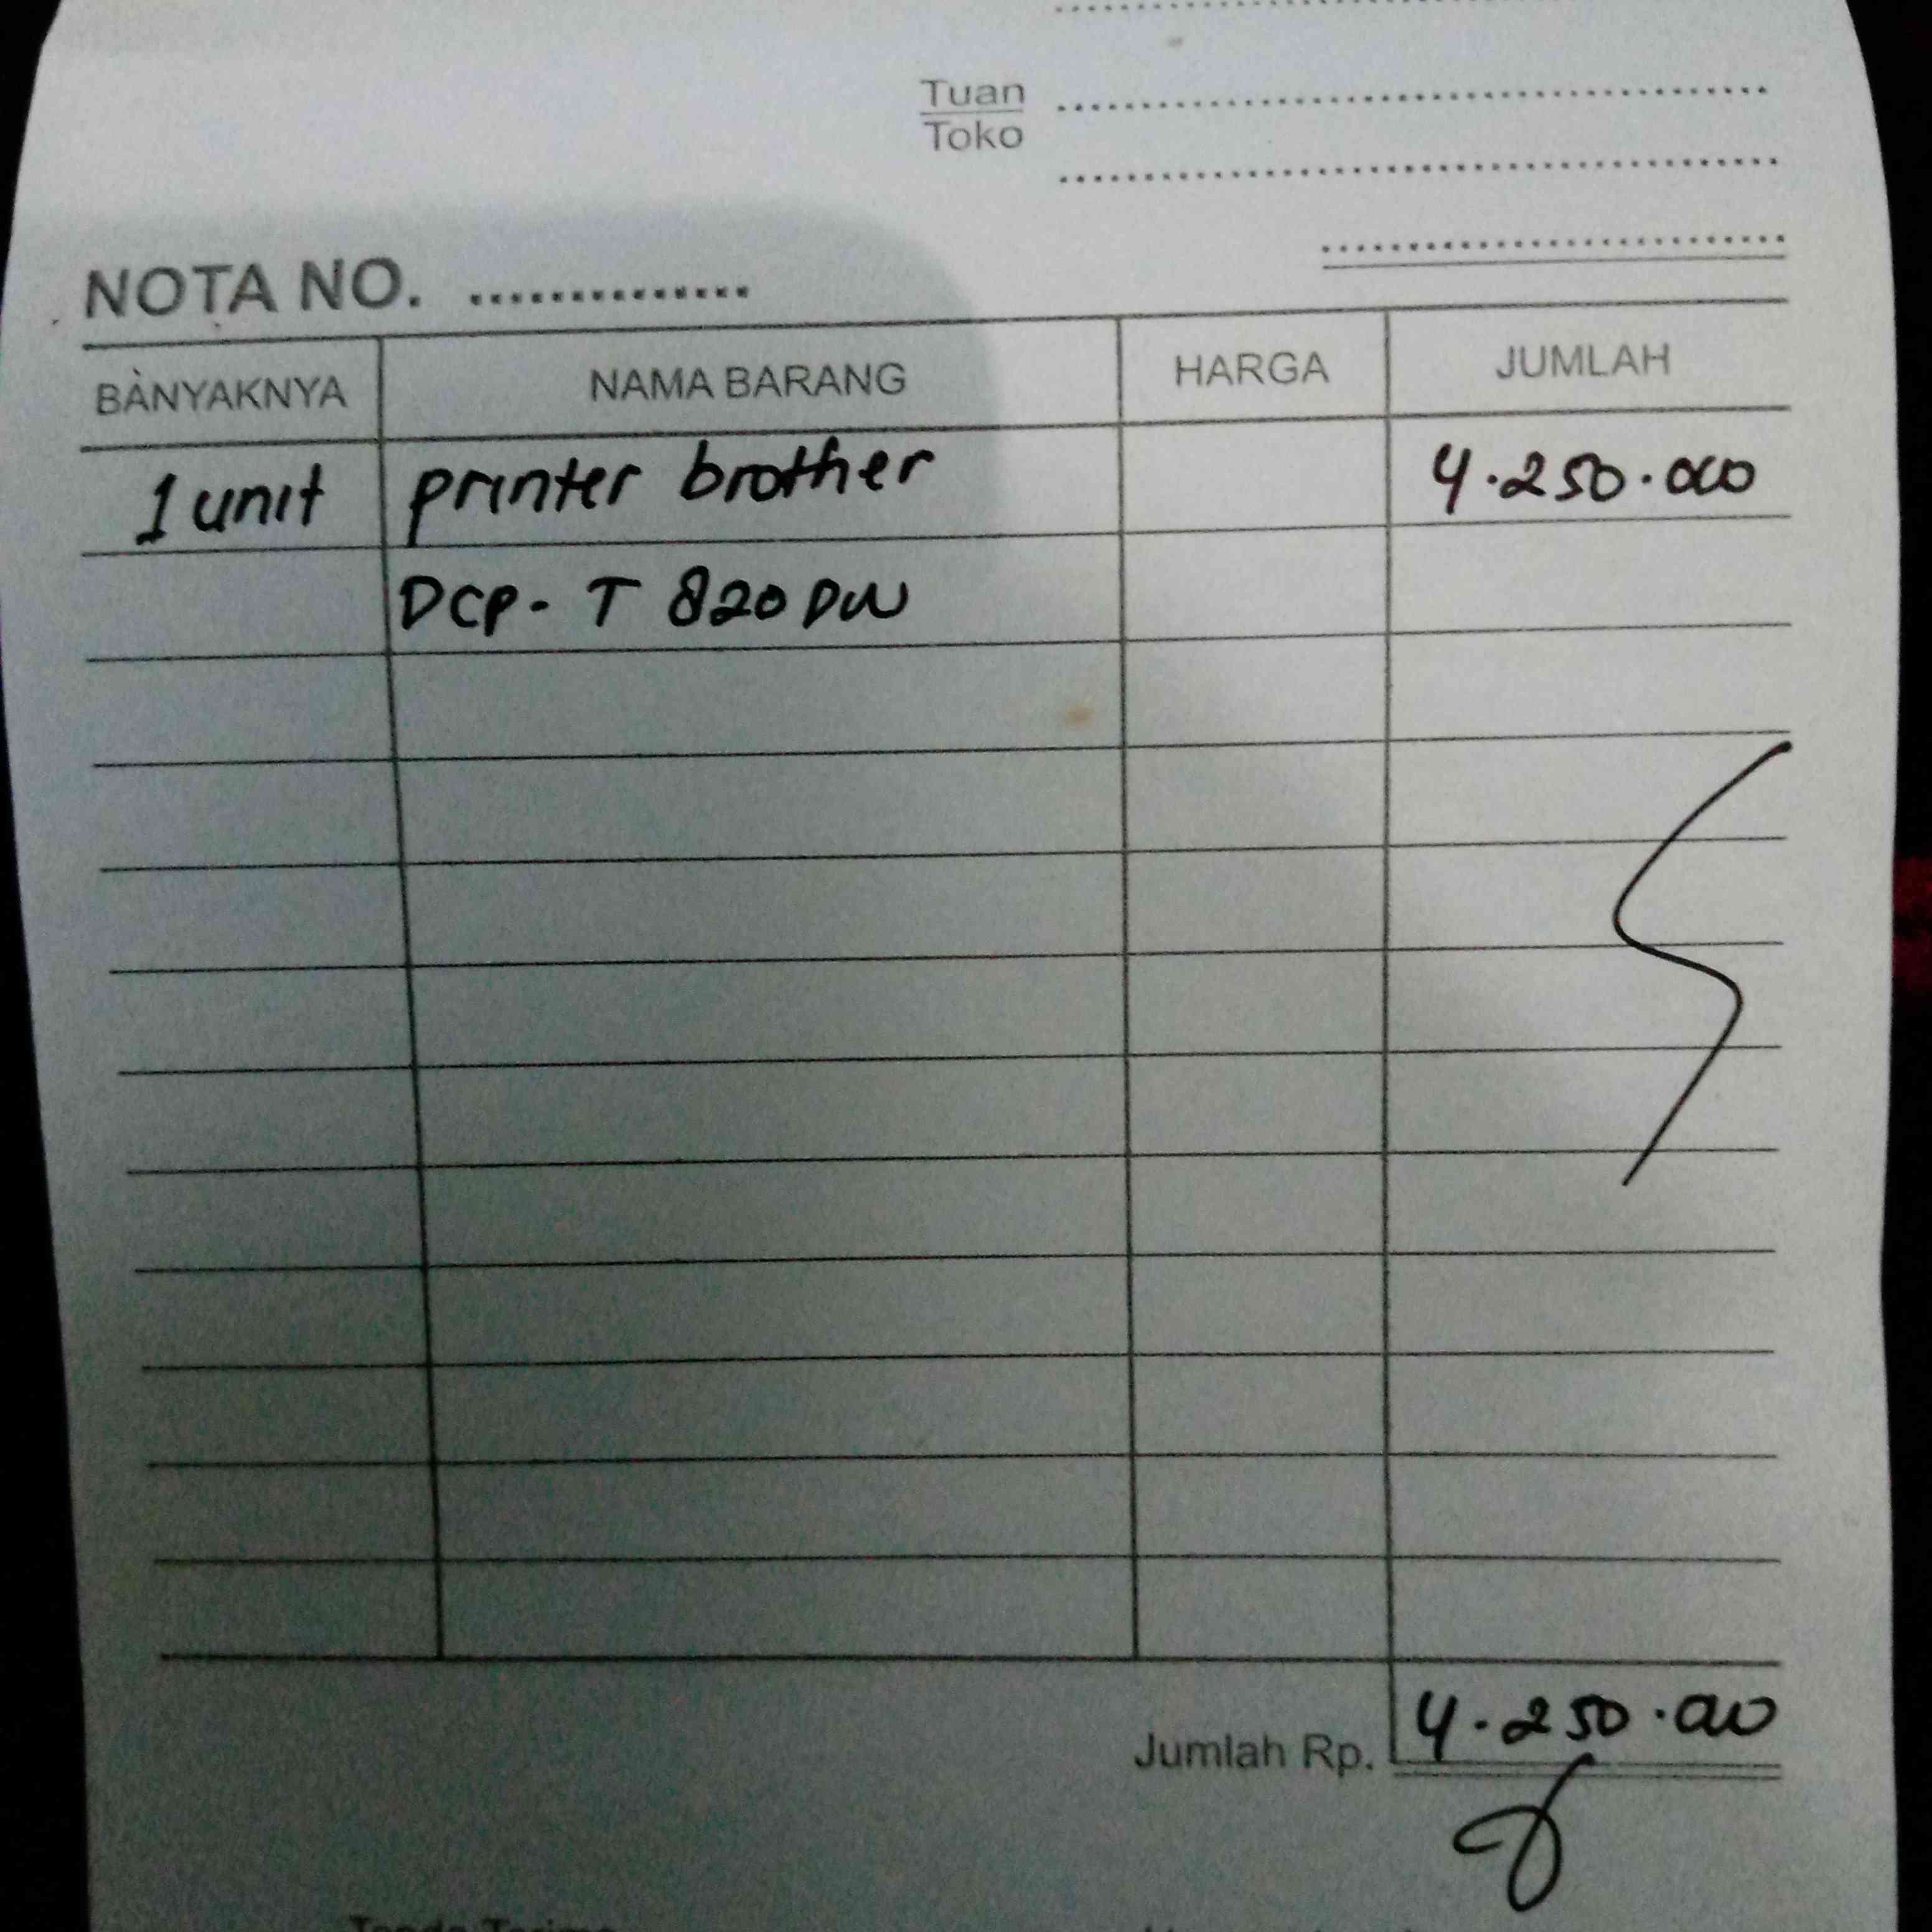 Tuan
Toko
NOTA NO. ..............
BANYAKNYA NAMA BARANG HARGA JUMLAH
1 unit printer brother 4.250.000
DCP- T 820 DW
Jumlah Rp. 4.250.000